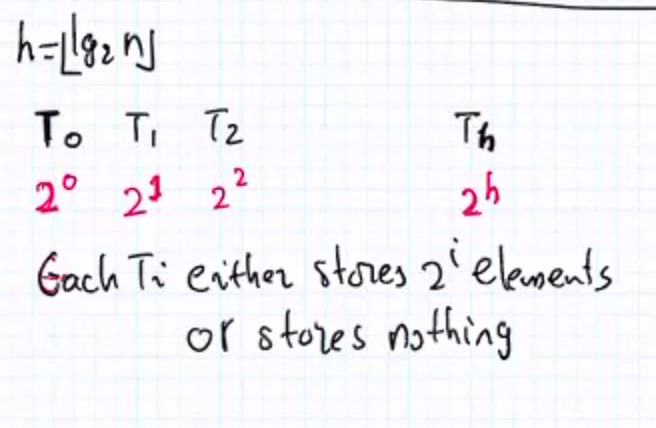 h=⌊lg₂ n⌋
T₀ T₁ T₂ Tₕ
2⁰ 2¹ 2² 2ʰ
Each Tᵢ either stores 2ⁱ elements
or stores nothing